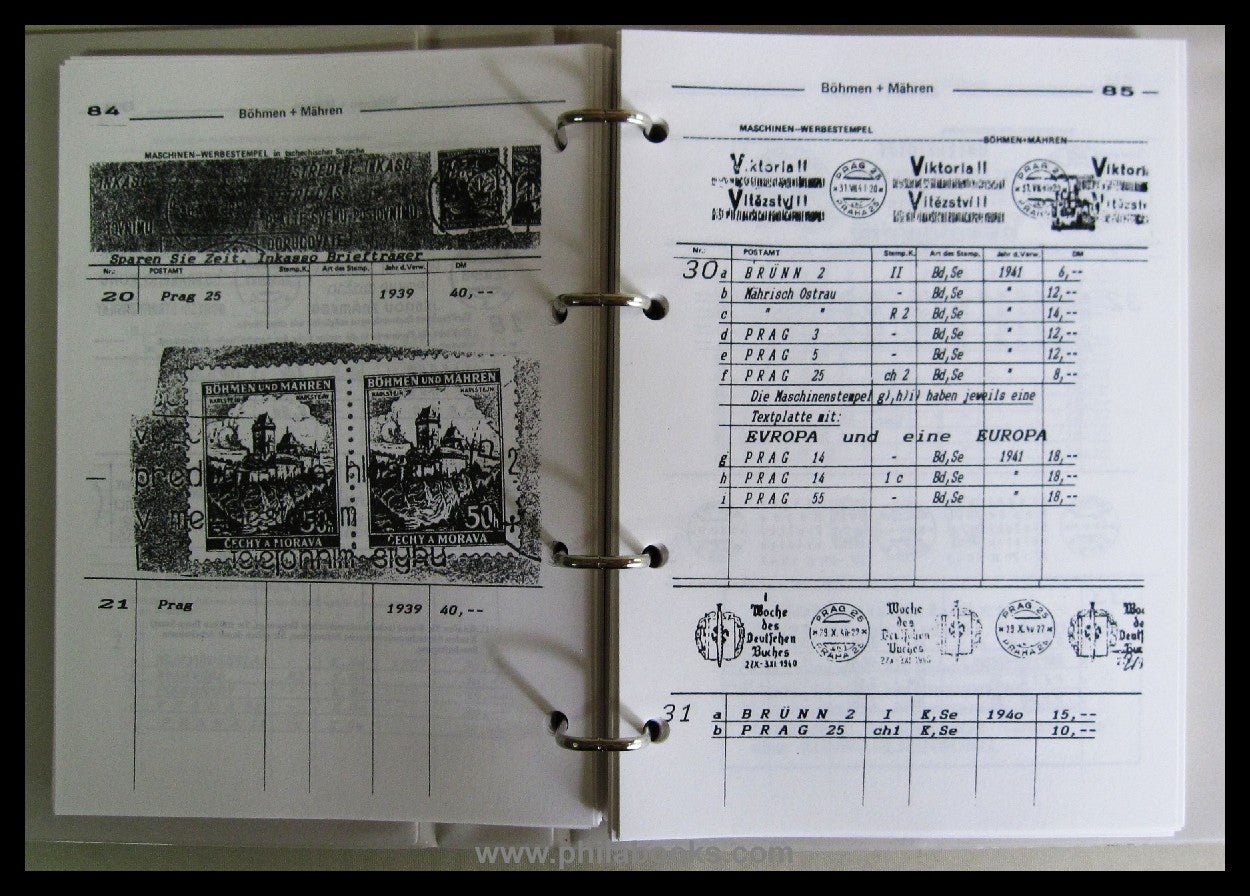 84 Böhmen + Mähren
MASCHINEN-WERBESTEMPEL in tschechischer Sprache
INKASO
Sparen Sie Zeit, Inkasso Briefträger
Nr.: POSTAMT Stemp.K. Art des Stemp. Jahr d.Verw. DM
20 Prag 25 1939 40,--
BÖHMEN UND MÄHREN BÖHMEN UND MÄHREN
KARLSTEJN KARLSTEJN
50h 50h
ČECHY A MORAVA ČECHY A MORAVA
21 Prag 1939 40,--
Böhmen + Mähren 85
MASCHINEN-WERBESTEMPEL BÖHMEN+MÄHREN
Viktoria!! PRAG 25 Viktoria!! PRAG 25 Viktori
Vítězství!! PRAHA 25 Vítězství!!
Nr.: POSTAMT Stemp.K. Art des Stemp. Jahr d.Verw. DM
30 a BRÜNN 2 II Bd,Se 1941 6,--
b Mährisch Ostrau - Bd,Se " 12,--
c " " R 2 Bd,Se " 14,--
d PRAG 3 - Bd,Se " 12,--
e PRAG 5 - Bd,Se " 12,--
f PRAG 25 ch 2 Bd,Se " 8,--
Die Maschinenstempel g),h)i) haben jeweils eine
Textplatte mit:
EVROPA und eine EUROPA
g PRAG 14 - Bd,Se 1941 18,--
h PRAG 14 1 c Bd,Se " 18,--
i PRAG 55 - Bd,Se " 18,--
Woche des Deutschen Buches 27.X.-3.XI.1940
PRAG 25 PRAHA 25
Woche des Deutschen Buches
PRAG 25 PRAHA 25
31 a BRÜNN 2 I K,Se 194o 15,--
b PRAG 25 ch1 K,Se 10,--
www.philabooks.com